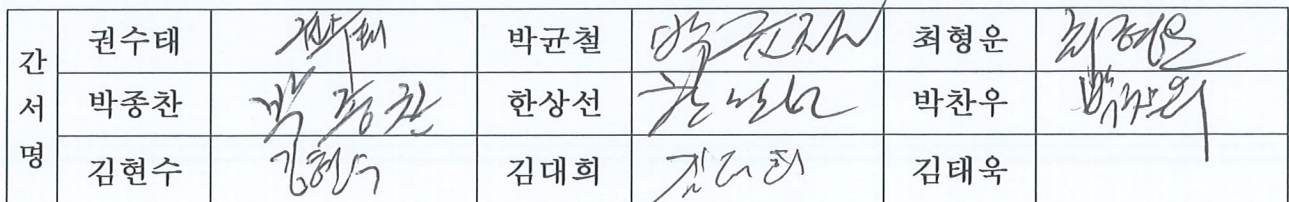 간서명
권수태 권수태 박균철 박균철 최형운 최형운
박종찬 박종찬 한상선 한상선 박찬우 박찬우
김현수 김현수 김대희 김대희 김태욱